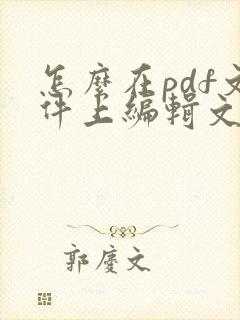 怎麼在pdf文
件上編輯文
郭慶文